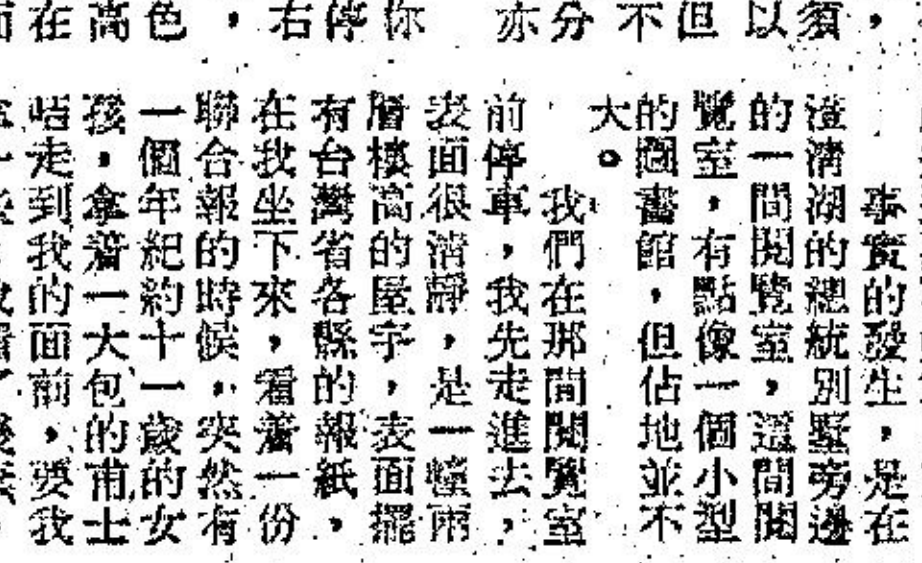 事實的發生，是在
澄清湖的總統別墅旁邊
的一間閱覽室，這間閱
覽室，有點像一個小型
的圖書館，但佔地並不
大。
我們在那間閱覽室
前停車，我先走進去，
表面很清靜，是一幢兩
層樓高的屋宇，表面擺
有台灣省各縣的報紙，
在我坐下來，看着一份
聯合報的時候，突然有
一個年紀約十一歲的女
孩，拿着一大包的甫士
咭走到我的面前，要我